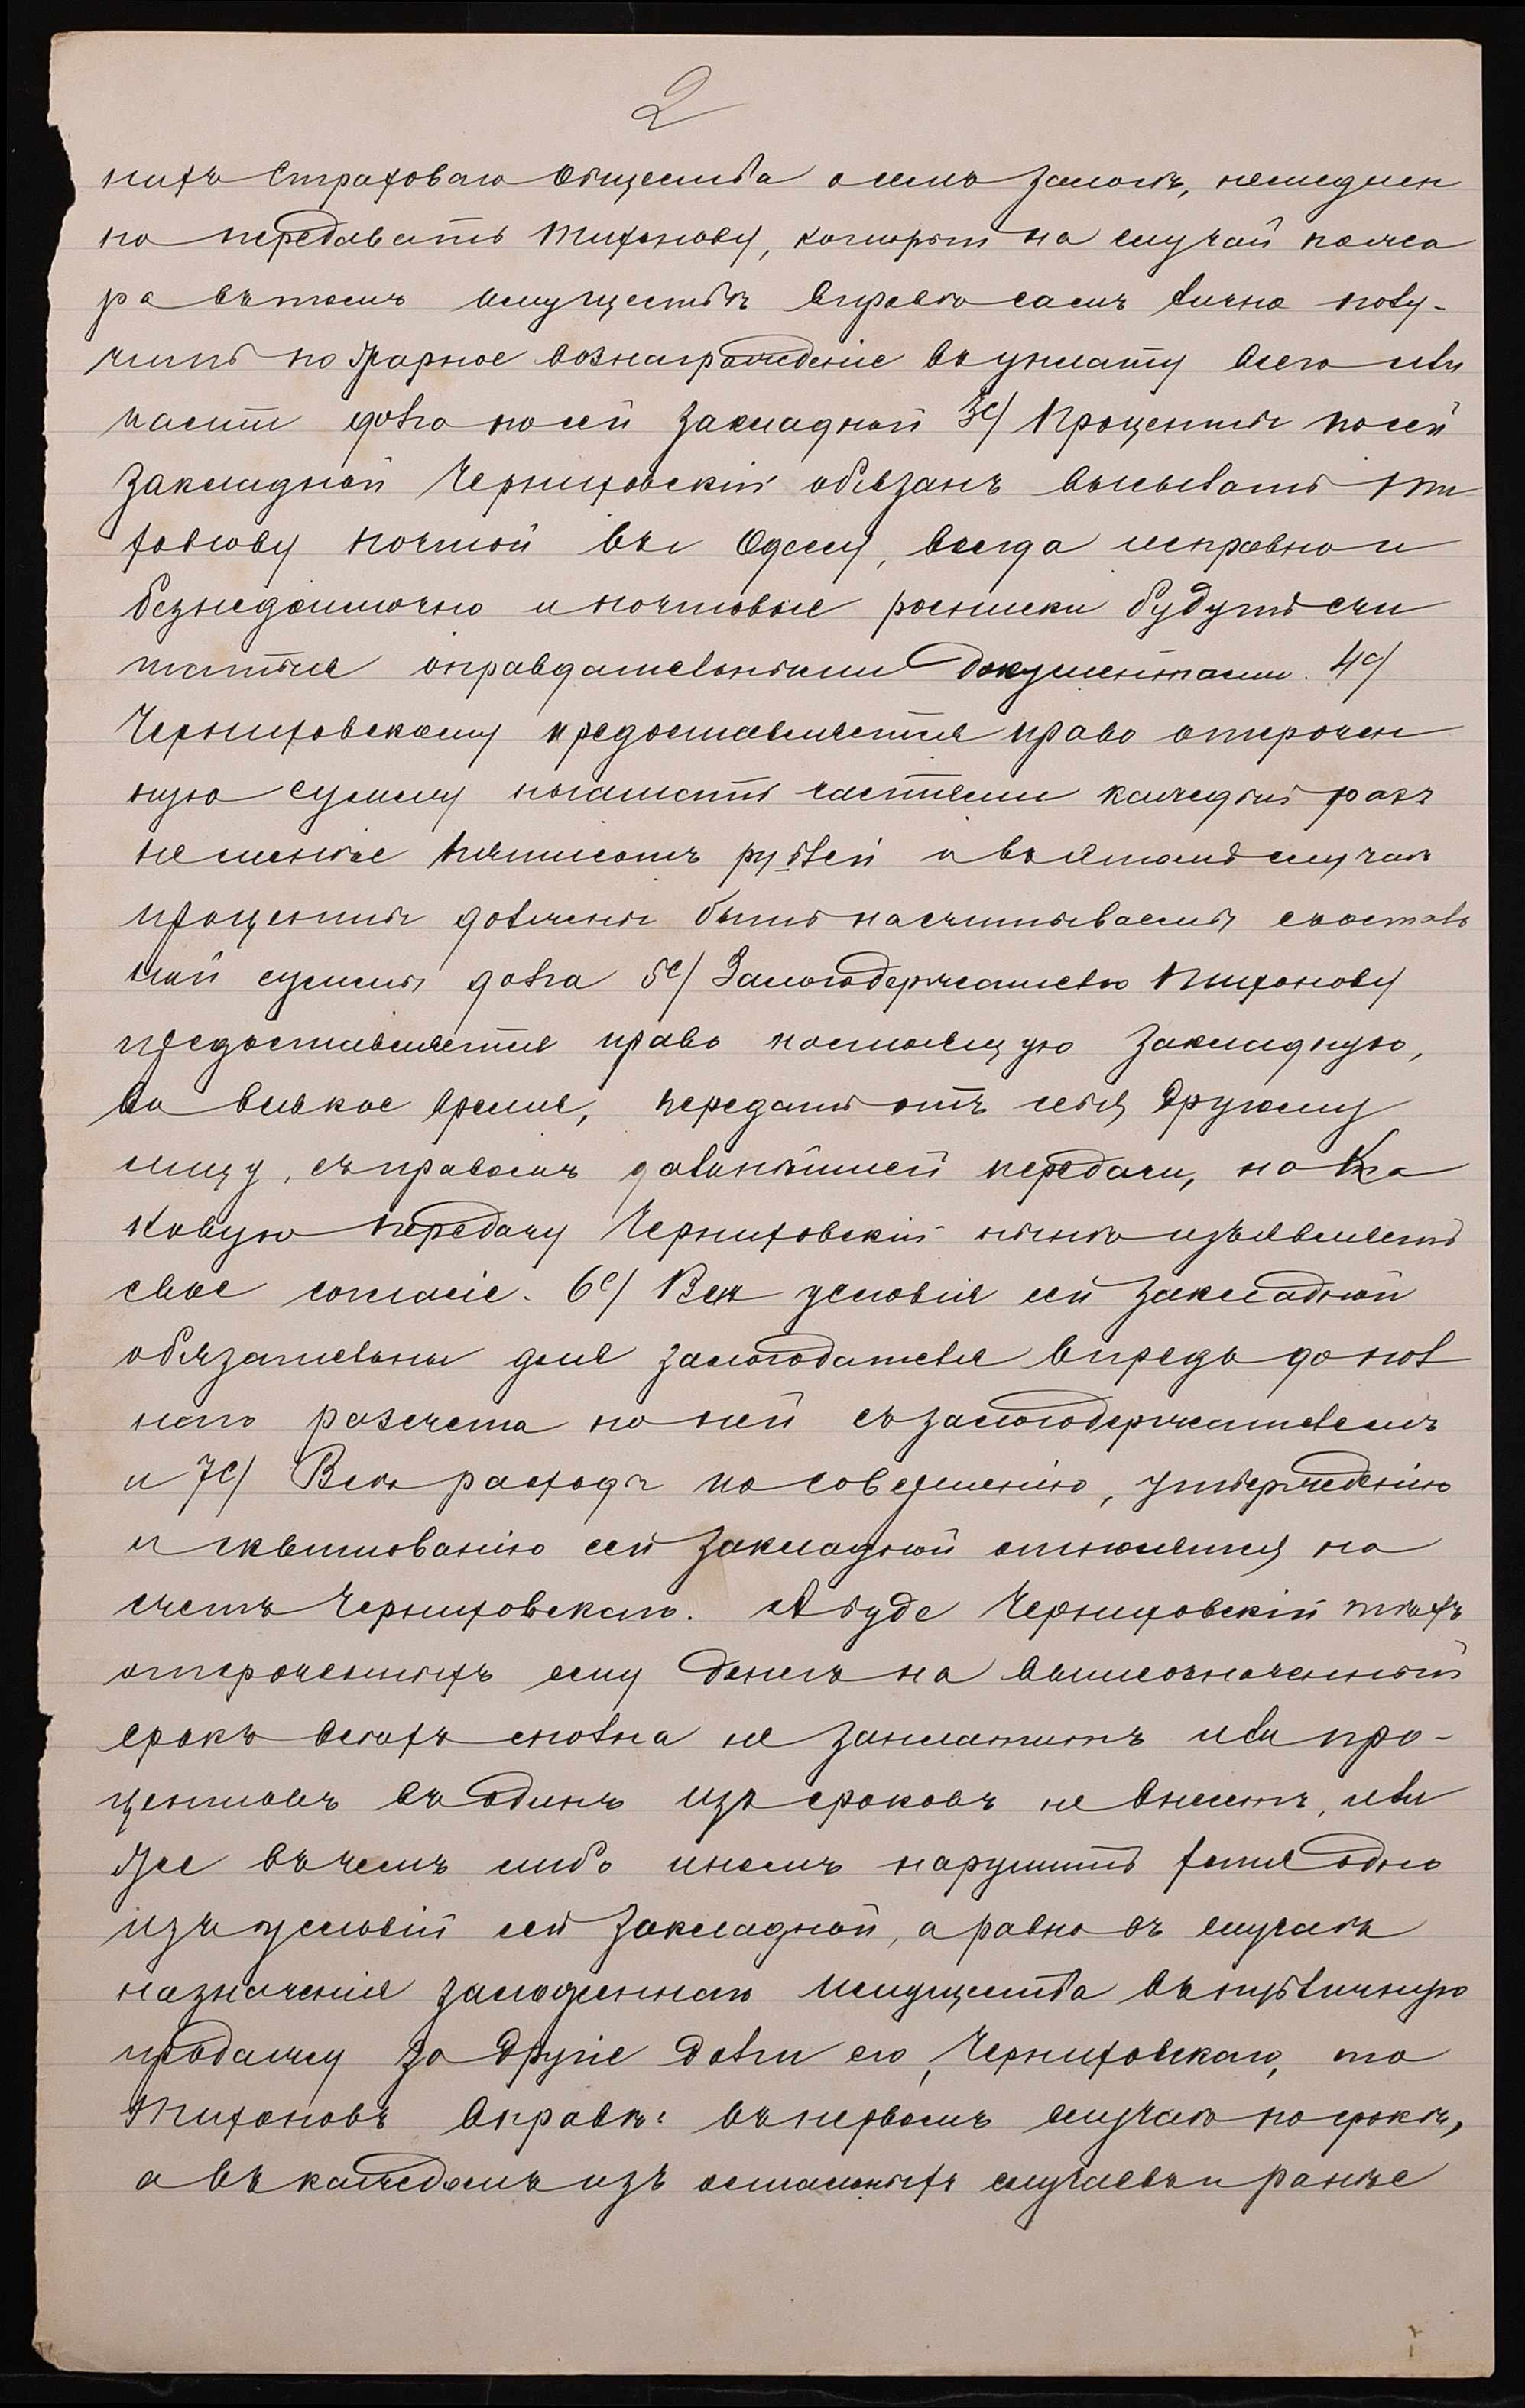 2
нихъ Страховаго Общества о семъ залогѣ, немедлен
но передавать Тихонову, который на случай пожа
ра въ томъ имуществѣ вправѣ самъ лично полу-
чить пожарное вознагражденіе въ уплату всего или
части долга по сей закладной 3е/ Проценты по сей
закладной Черниховскій обязанъ высылать Ти
хонову почтой въ Одессу, всегда исправно и
безнедоимочно и почтовые росписки будутъ счи
таться оправдательными документами. 4е/
Черниховскому предоставляется право отсрочен
ную сумму погашать частями каждый разъ
не менѣе пятисотъ рублей и въ этомъ случаѣ
проценты должны быть насчитываемы съ осталь
ной суммы долга 5е/ Залогодержателю Тихонову
предоставляется право настоящую закладную,
во всякое время, передать отъ себя другому
лицу, съ правомъ дальнѣйшей передачи, на ка
ковую передачу Черниховскій нынѣ изъявляетъ
свое согласіе. 6е/ Всѣ условія сей закладной
обязательны для залогодателя впредь до пол
наго разсчета по ней съ залогодержателемъ
и 7е/ Всѣ расходы по совершенію, утвержденію
и сквитованію сей закладной относятся на
счетъ Черниховскаго. А буде Черниховскій тѣхъ
отсроченныхъ ему денегъ на вышеозначенный
срокъ всѣхъ сполна не заплатитъ или про-
центовъ въ одинъ изъ сроковъ не внесетъ, или
же въ чемъ либо иномъ нарушитъ хотя одно
изъ условій сей закладной, а равно въ случаѣ
назначенія заложеннаго имущества въ публичную
продажу за другіе долги его, Черниховскаго, то
Тихоновъ вправѣ: въ первомъ случаѣ по срокѣ,
а въ каждомъ изъ остальныхъ случаевъ и ранѣе